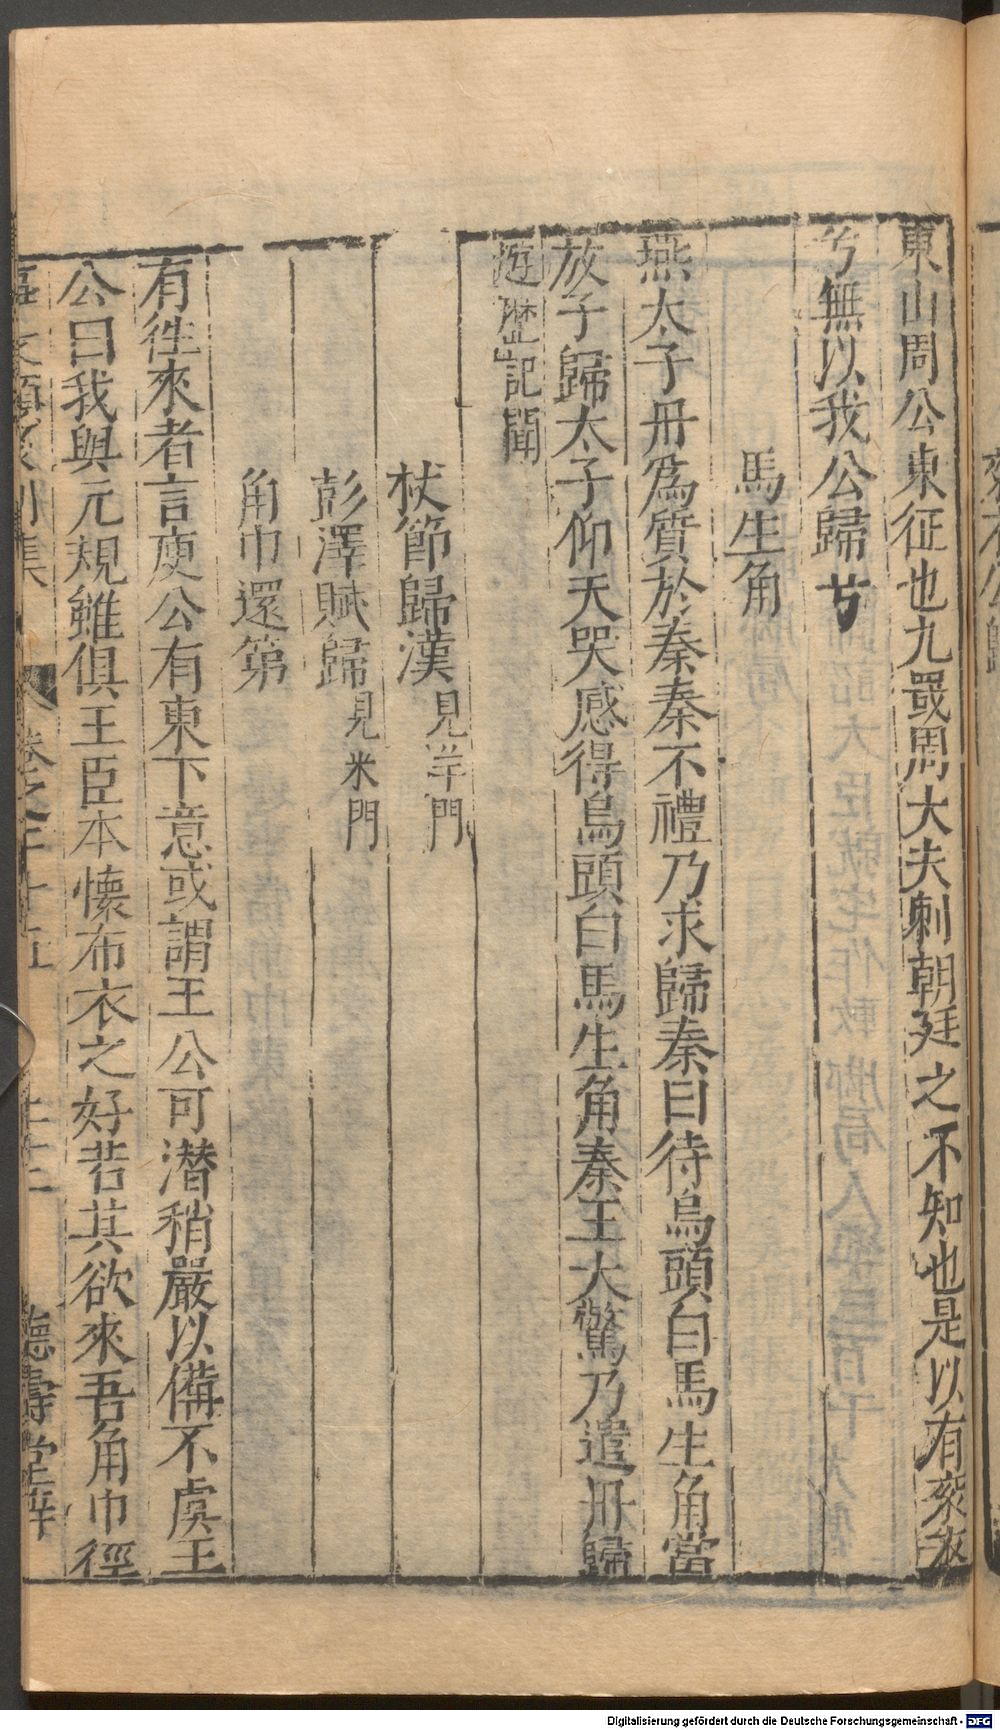 東山周公東征也九罭周大夫刺朝廷之不知也是以有衮衣
兮無以我公歸兮
馬生角
燕太子丹爲質於秦秦不禮乃求歸秦曰待烏頭白馬生角當
放子歸太子仰天哭感得烏頭白馬生角秦王大驚乃遣丹歸
遊歷記聞
杖節歸漢見羊門
彭澤賦歸見米門
角巾還第
有徃來者言庾公有東下意或謂王公可潜稍嚴以備不虞王
公曰我與元規雖俱王臣本懷布衣之好若其欲來吾角巾徑
事文類聚別集 卷之二十五 德壽堂梓
Digitalisierung gefördert durch die Deutsche Forschungsgemeinschaft - DFG